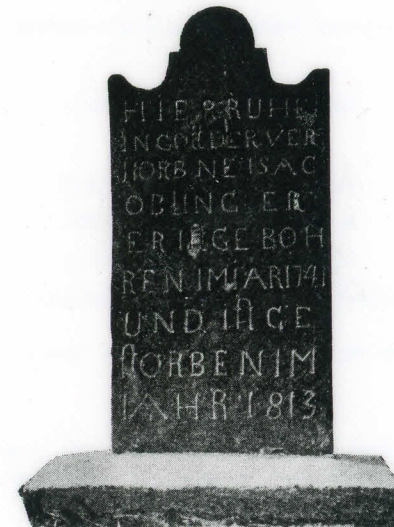 HIER RUHET
IN GOT DER VER
STORBNE ISAC
OBLINGER
ER IST GEBOH
REN IM IAR 1741
UND IST GE
STORBEN IM
IAHR 1813